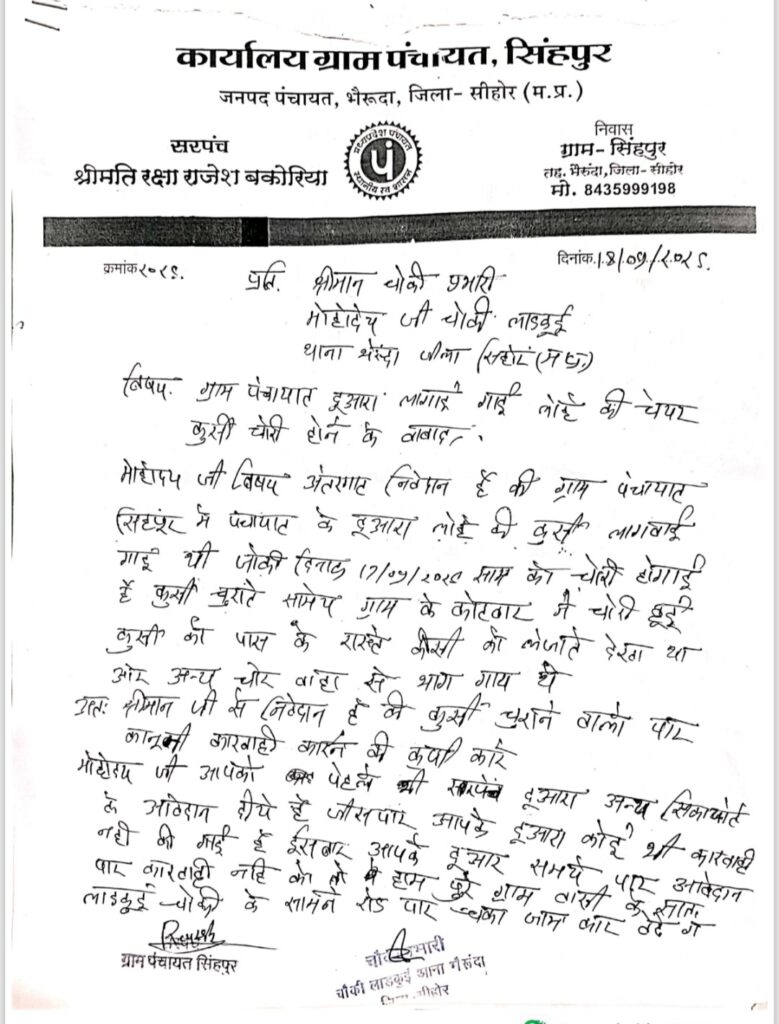 कार्यालय ग्राम पंचायत, सिंहपुर
जनपद पंचायत, भैरूदा, जिला- सीहोर (म.प्र.)
सरपंच
श्रीमति रक्षा राजेश बकोरिया
मध्यप्रदेश पंचायत
पं
स्थानीय स्व शासन
निवास
ग्राम- सिंहपुर
तह. भैरूंदा, जिला- सीहोर
मो. 8435999198
क्रमांक २०२५.
दिनांक. 18/09/२०२५.
प्रति. श्रीमान चोकी प्रभारी
मोहोदय जी चोकी लाडकुई
थाना भेरूंदा जीला सिहोर (म.प्र.)
विषय. ग्राम पंचायात दूआरा लागाई गाई लोहे की चेयर
कुर्सी चोरी होने के वाबाद.
मोहोदय जी विषय अंतरगात निवेदान है की ग्राम पंचायात
सिहपुर मे पंचायात के दूआरा लोहे की कुर्सी लागवाई
गाई थी जोकी दिनाक 17/09/२०२५ साम को चोरी होगाई
है कुर्सी चुराते सामेय ग्राम के कोटवार ने चोरी हूई
कुर्सी को पास के रास्ते कीसी को लेजाते देखा था
ओर अन्य चोर वाहा से भाग गाय थे
अतः श्रीमान जी से निवेदान है की कुर्सी चुराने वालो पार
कानूनी कारवाही कारने की कृपा कारे
मोहोदय जी आपको पेहले भी सारपंच दूआरा अन्य सिकायोते
के आवेदान दीये है जीसपार आपके दूआरा कोई भी कारवाही
नही की गाई है ईसबार आपके दूआर समये पार आवेदान
पार कारवाही नहि की तो हाम पुरे ग्राम वासी के साथ
लाडकुई चोकी के सामने रोड पार चक्का जाम कार देगे
ग्राम पंचायत सिंहपुर
चौकी प्रभारी
चौकी लाडकुई थाना भैरूंदा
जिला-सीहोर